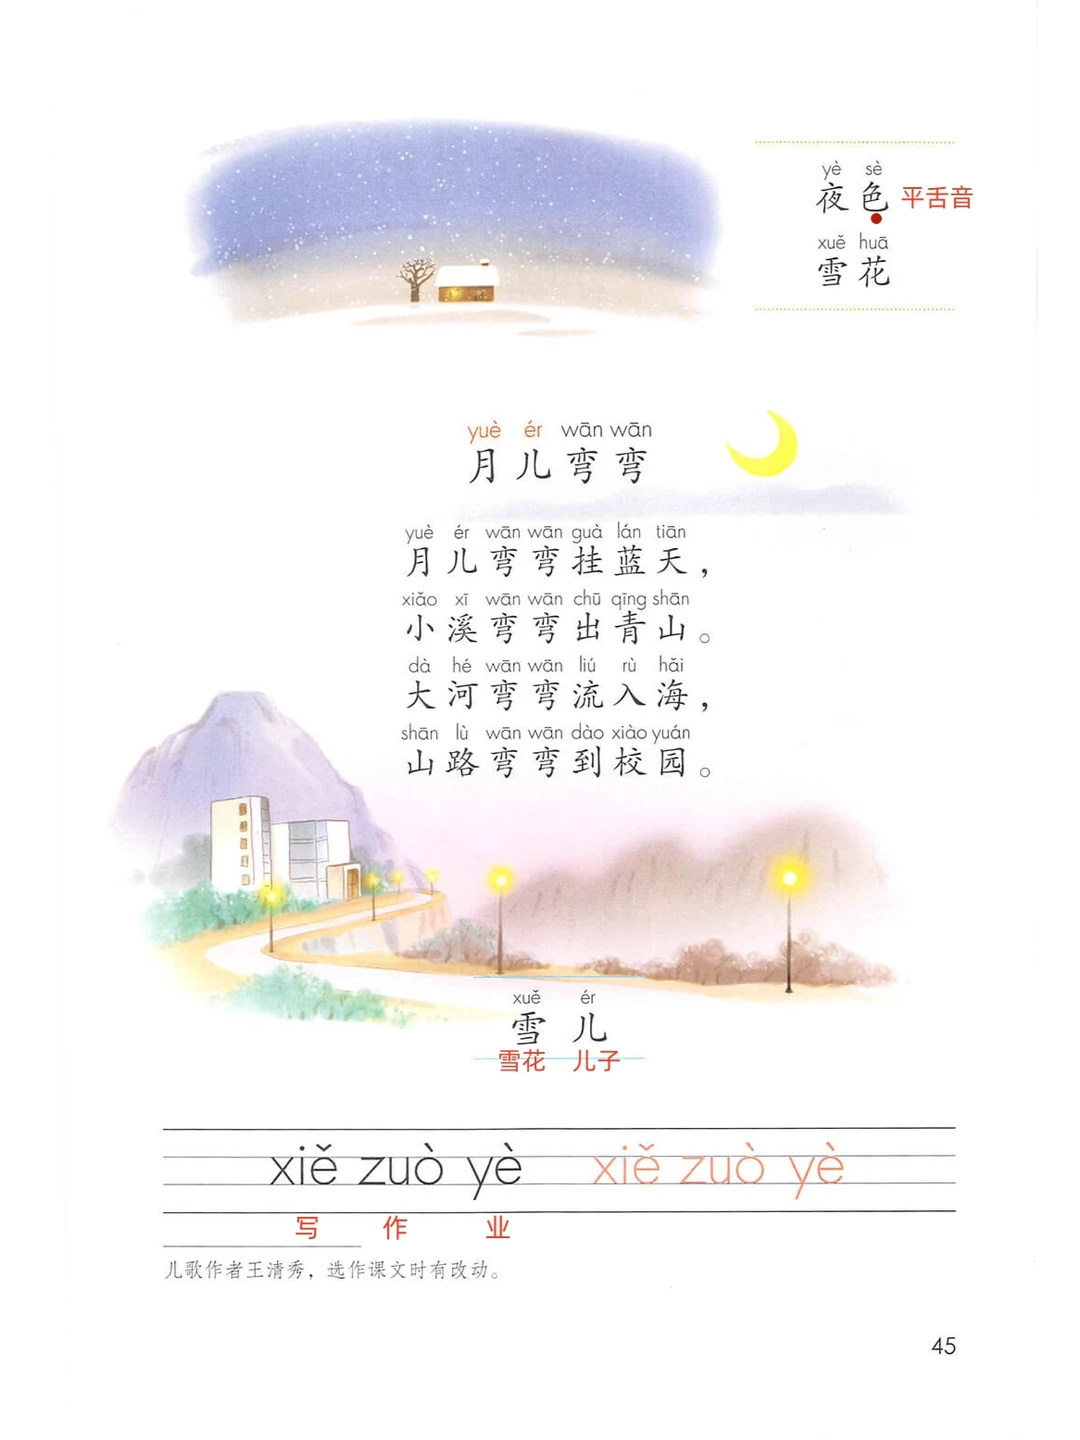 yè sè
夜色 平舌音
xuě huā
雪花
yuè ér wān wān
月儿弯弯
yuè ér wān wān guà lán tiān
月儿弯弯挂蓝天，
xiǎo xī wān wān chū qīng shān
小溪弯弯出青山。
dà hé wān wān liú rù hǎi
大河弯弯流入海，
shān lù wān wān dào xiào yuán
山路弯弯到校园。
xuě ér
雪儿
雪花 儿子
xiě zuò yè xiě zuò yè
写 作 业
儿歌作者王清秀，选作课文时有改动。
45